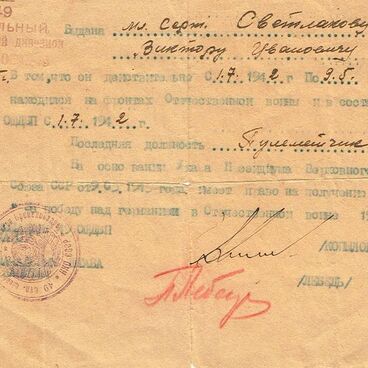 49
льный
Выдана мл. серт. Светлакову
Виктору Ивановичу
В том, что он действительно с 1.7 1942 По 9.5.
находился на фронтах Отечественной войны и в соста
ОЩДЫП с 1.7. 1942 г.
Последняя должность Пулеметчик
На основании Указа Президиума Верховного
Союза ССР от 9.05.1945 года имеет право на получение
победу над германией в Отечественной войне 19
/КОПЫЛОВ
ЛАВА
/ЛЕБЕДЬ/
П Лебедь